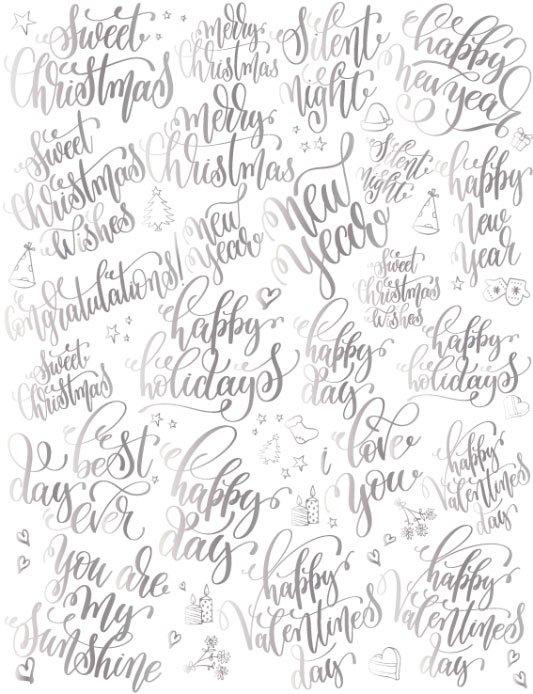 Sweet
Christmas
Merry
Christmas
Silent
Night
happy
New year
Sweet
Christmas
Wishes
Merry
Christmas
Silent
Night
happy
New
Year
New
Year
New
Year
Congratulations!
Sweet
Christmas
Wishes
Sweet
Christmas
happy
holidays
happy
day
happy
holidays
best
day
ever
happy
day
i love
you
happy
Valentines
day
You are
My
Sunshine
happy
Valentines
day
happy
Valentines
day